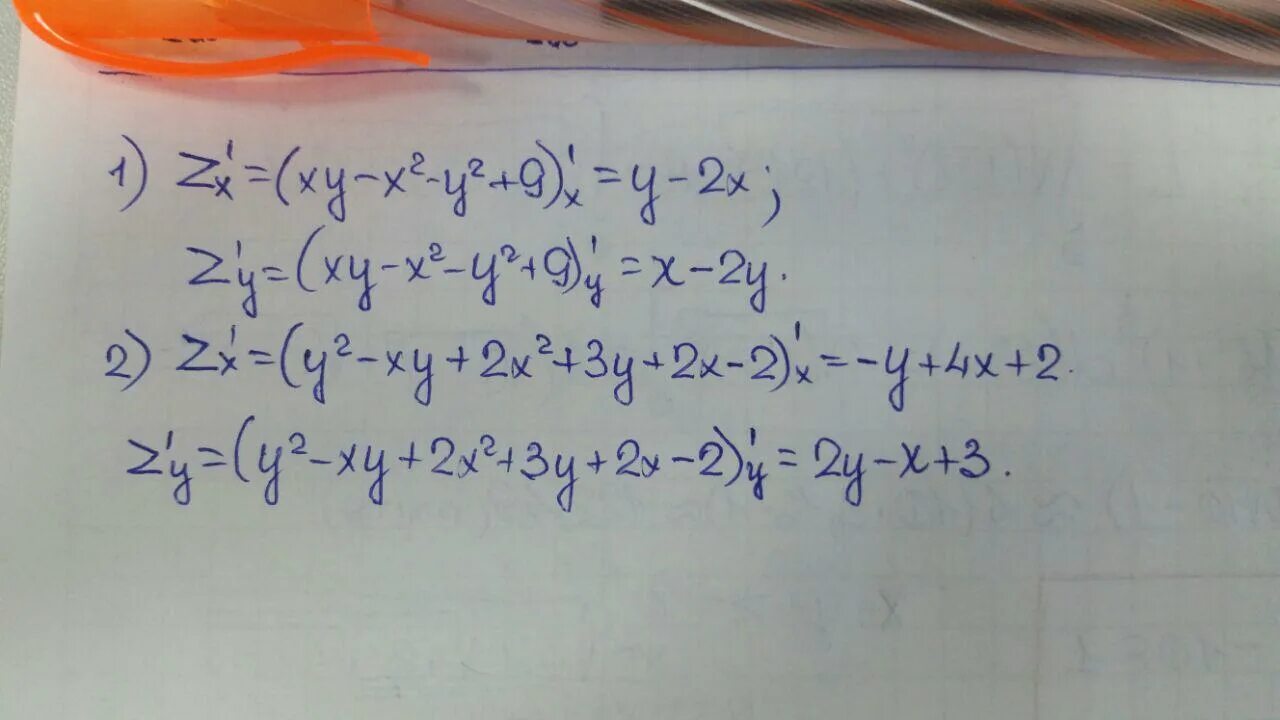 1) z'ₓ = (xy - x² - y² + 9)'ₓ = y - 2x;
z'_y = (xy - x² - y² + 9)'_y = x - 2y.
2) z'ₓ = (y² - xy + 2x² + 3y + 2x - 2)'ₓ = -y + 4x + 2.
z'_y = (y² - xy + 2x² + 3y + 2x - 2)'_y = 2y - x + 3.